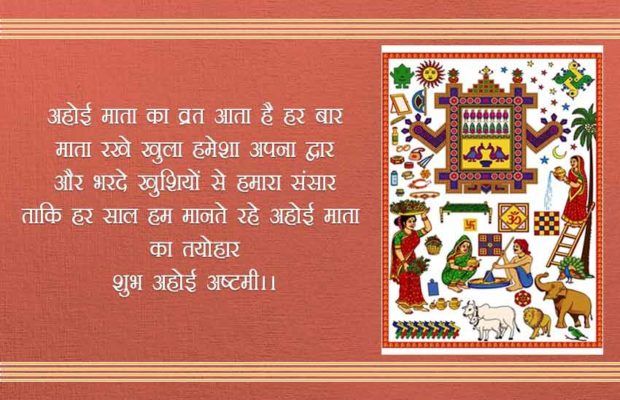 अहोई माता का व्रत आता है हर बार
माता रखे खुला हमेशा अपना द्वार
और भरदे खुशियों से हमारा संसार
ताकि हर साल हम मानते रहे अहोई माता
का तयोहार
शुभ अहोई अष्टमी।।
ॐ